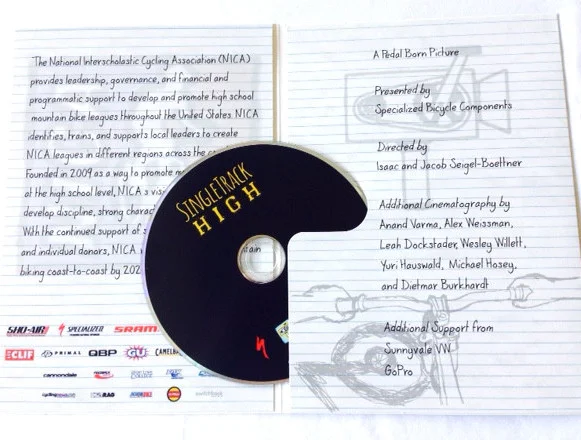 The National Interscholastic Cycling Association (NICA)
provides leadership, governance, and financial and
programmatic support to develop and promote high school
mountain bike leagues throughout the United States. NICA
identifies, trains, and supports local leaders to create
NICA leagues in different regions across the
Founded in 2009 as a way to promote
at the high school level, NICA's
develop discipline, strong
With the continued support of
and individual donors, NICA
biking coast-to-coast by
SHO-AIR
SPECIALIZED
SRAM
CLIF
PRIMAL
QBP
GU
CAMELBA
cannondale
SINGLETRACK
HIGH
A Pedal Born Picture
Presented by
Specialized Bicycle Components
Directed by
Isaac and Jacob Seigel-Boettner
Additional Cinematography by
Anand Varma, Alex Weissman,
Leah Dockstader, Wesley Willett,
Yuri Hauswald, Michael Hosey,
and Dietmar Burkhardt
Additional Support from
Sunnyvale VW
GoPro